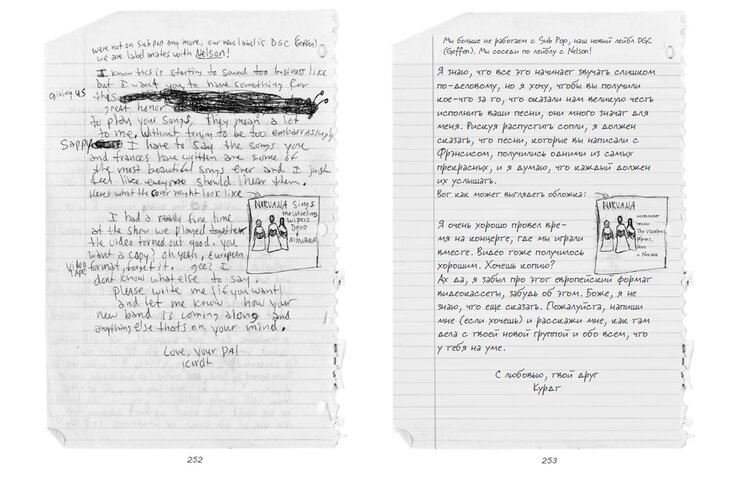 were not on subpop any more, our new label is DGC (Geffen)
we are label mates with Nelson!
I know this is starting to sound too business like
but I want you to have something for
giving us
this
great honor
to play your songs, they mean a lot
to me. Without trying to be too embarrassingly
Sappy
I have to say the songs you
and frances have written are some of
the most beautiful songs ever and I just
feel like everyone should hear them.
Heres what the cover might look like
NIRVANA Sings
the vaselines
wipers
Devo
&
NIRVANA
I had a really fine time
at the show we played together
the video turned out good. you
want a copy? oh yeah, european
Video tape
format, forget it. gee? I
dont know what else to say.
please write me (if you want)
and let me know how your
new band is coming along and
anything else thats on your mind.
Love, your pal
kurdt
252
Мы больше не работаем с Sub Pop, наш новый лейбл DGC
(Geffen). Мы соседи по лейблу с Nelson!
Я знаю, что все это начинает звучать слишком
по-деловому, но я хочу, чтобы вы получили
кое-что за то, что оказали нам великую честь
исполнить ваши песни, они много значат для
меня. Рискуя распустить сопли, я должен
сказать, что песни, которые вы написали с
Фрэнсисом, получились одними из самых
прекрасных, и я думаю, что каждый должен
их услышать.
Вот как может выглядеть обложка:
NIRVANA
исполняет
песни
The Vaselines,
Wipers,
Devo
и Nirvana
Я очень хорошо провел вре-
мя на концерте, где мы играли
вместе. Видео тоже получилось
хорошим. Хочешь копию?
Ах да, я забил про этот европейский формат
видеокассеты, забудь об этом. Боже, я не
знаю, что еще сказать. Пожалуйста, напиши
мне (если хочешь) и расскажи мне, как там
дела с твоей новой группой и обо всем, что
у тебя на уме.
С любовью, твой друг
Курдт
253